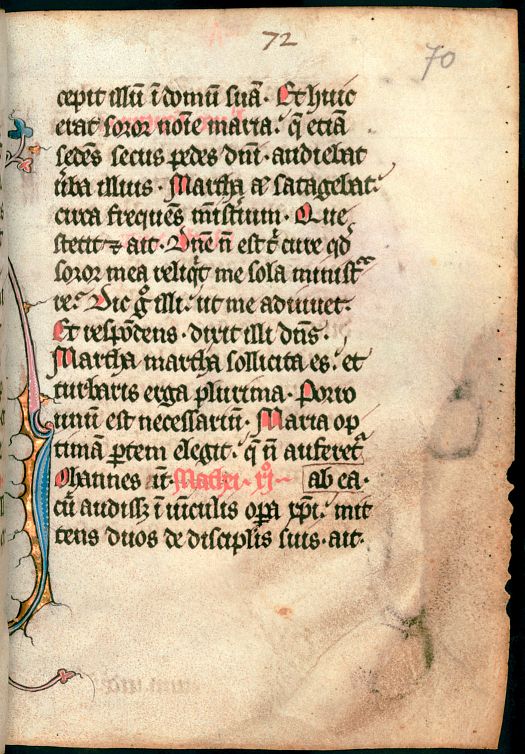 72
70
cepit illū ī domū suā. Et huic
erat soror noīe maria. q̄ eciā
sedēs secus pedes dn̄i. audiebat
ūba illius. Martha aū satagebat
circa frequēs mīsteriū. Que
stetit ⁊ ait. Dn̄e n̄ est t' cure qd'
soror mea reliq̇t me solā minist
re. Dic g° illi. ut me adiuuet.
Et respōdens. dixit illi dn̄s.
Martha martha sollicita es. et
turbaris erga plurima. Porro
unū est necessariū. Maria op
timā ꝑtem elegit. q̄ n̄ auferetᷣ
ab ea.
Iohannes aū. Mathei. xj°
cū audissꝫ ī uīculis oꝑa xp̄i. mit
tens duos de disciplīs suis. ait.